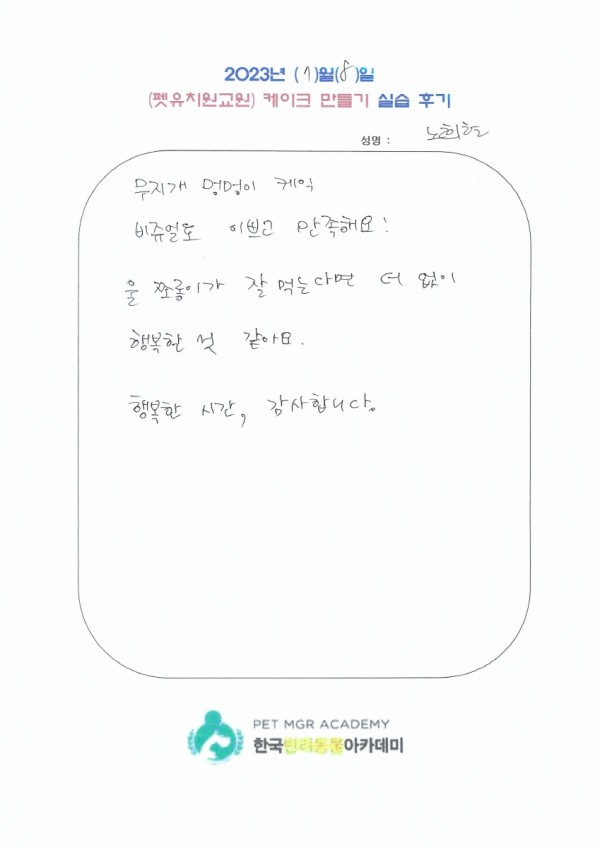 2023년 (7)월(8)일
(펫유치원교원) 케이크 만들기 실습 후기
성명 : 노희현
무지개 멍멍이 케익
비쥬얼도 이쁘고 만족해요!
울 쪼롱이가 잘 먹는다면 더 없이
행복한 것 같아요.
행복한 시간, 감사합니다.
PET MGR ACADEMY
한국반려동물아카데미